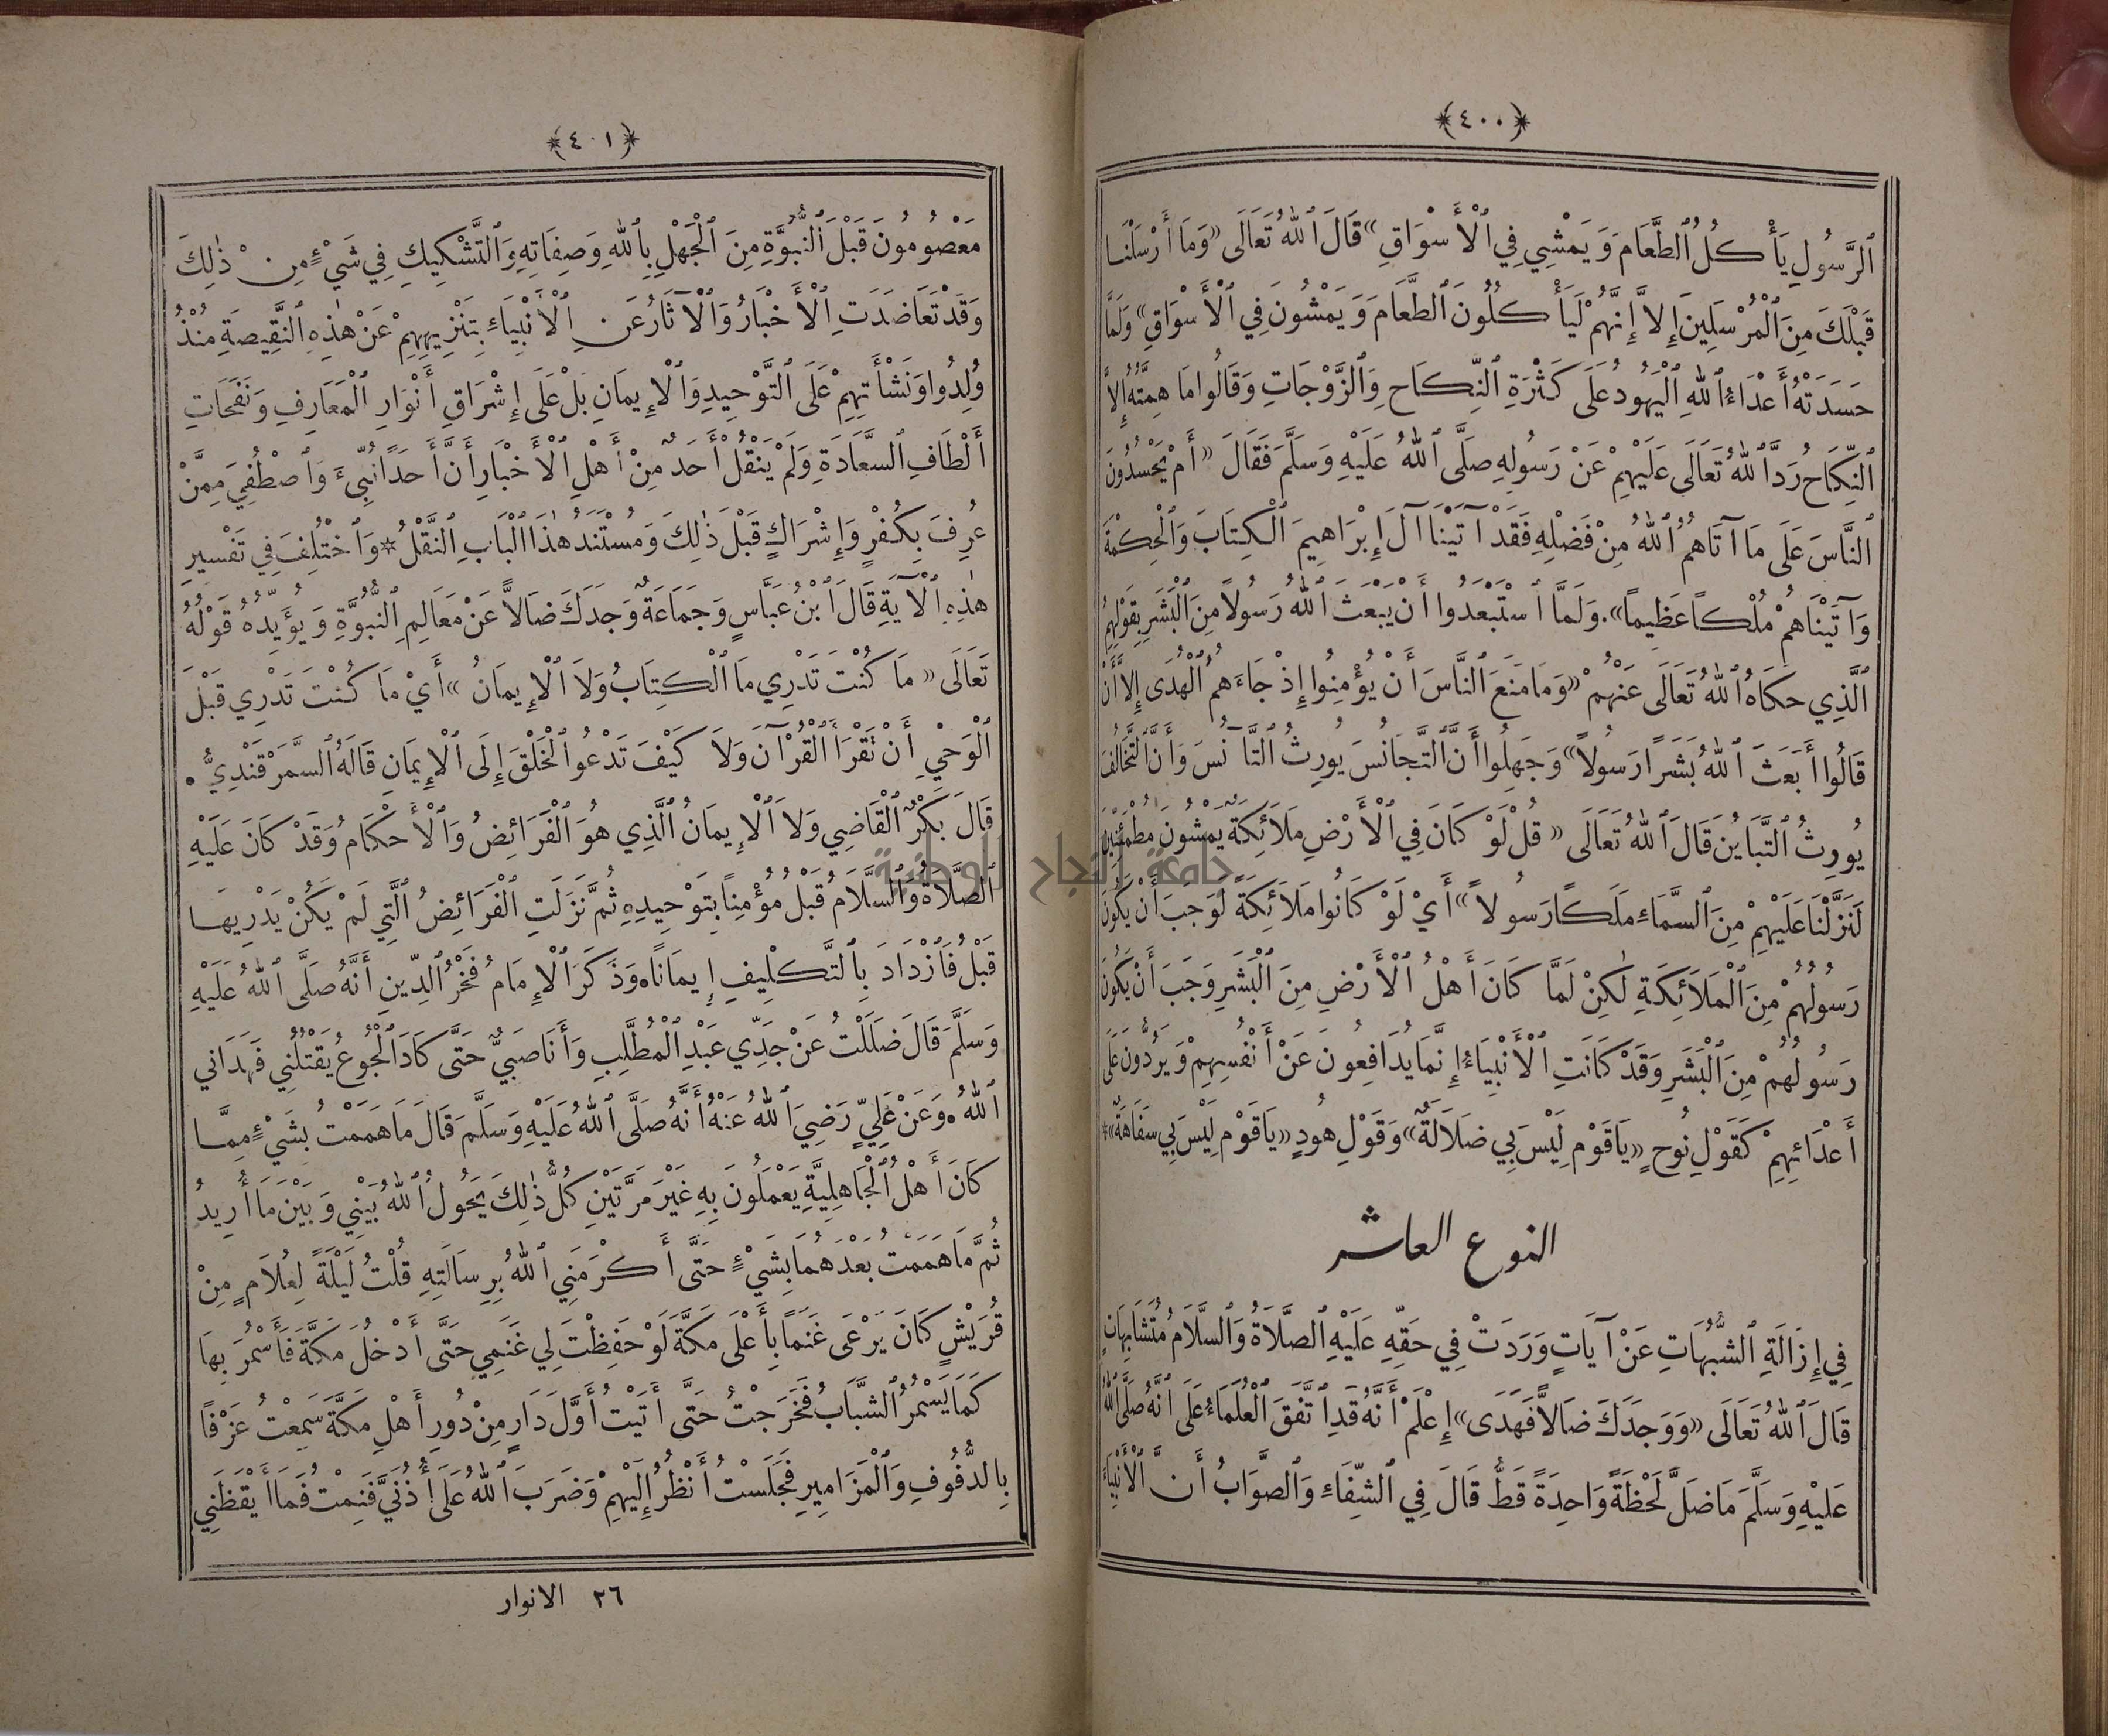 ﴿٤٠٠﴾
ٱلرَّسُولِ يَأْكُلُ ٱلطَّعَامَ وَيَمْشِي فِي ٱلْأَسْوَاقِ» قَالَ ٱللهُ تَعَالَى «وَمَا أَرْسَلْنَا
قَبْلَكَ مِنَ ٱلْمُرْسَلِينَ إِلاَّ إِنَّهُمْ لَيَأْكُلُونَ ٱلطَّعَامَ وَيَمْشُونَ فِي ٱلْأَسْوَاقِ» وَلَمَّا
حَسَدَتْهُ أَعْدَاءُ ٱللهِ ٱلْيَهُودُ عَلَى كَثْرَةِ ٱلنِّكَاحِ وَٱلزَّوْجَاتِ وَقَالُوا مَا هِمَّتُهُ إِلاَّ
ٱلنِّكَاحُ رَدَّ ٱللهُ تَعَالَى عَلَيْهِمْ عَنْ رَسُولِهِ صَلَّى ٱللهُ عَلَيْهِ وَسَلَّمَ فَقَالَ «أَمْ يَحْسُدُونَ
ٱلنَّاسَ عَلَى مَا آتَاهُمُ ٱللهُ مِنْ فَضْلِهِ فَقَدْ آتَيْنَا آلَ إِبْرَاهِيمَ ٱلْكِتَابَ وَٱلْحِكْمَةَ
وَآتَيْنَاهُمْ مُلْكًا عَظِيمًا». وَلَمَّا ٱسْتَبْعَدُوا أَنْ يَبْعَثَ ٱللهُ رَسُولاً مِنَ ٱلْبَشَرِ بِقَوْلِهِمُ
ٱلَّذِي حَكَاهُ ٱللهُ تَعَالَى عَنْهُمْ «وَمَا مَنَعَ ٱلنَّاسَ أَنْ يُؤْمِنُوا إِذْ جَاءَهُمُ ٱلْهُدَى إِلاَّ أَنْ
قَالُوا أَبَعَثَ ٱللهُ بَشَرًا رَسُولاً» وَجَهِلُوا أَنَّ ٱلتَّجَانُسَ يُورِثُ ٱلتَّآنُسَ وَأَنَّ ٱلتَّخَالُفَ
يُورِثُ ٱلتَّبَايُنَ قَالَ ٱللهُ تَعَالَى «قُلْ لَوْ كَانَ فِي ٱلْأَرْضِ مَلاَئِكَةٌ يَمْشُونَ مُطْمَئِنِّينَ
لَنَزَّلْنَا عَلَيْهِمْ مِنَ ٱلسَّمَاءِ مَلَكًا رَسُولاً» أَيْ لَوْ كَانُوا مَلاَئِكَةً لَوَجَبَ أَنْ يَكُونَ
رَسُولُهُمْ مِنَ ٱلْمَلاَئِكَةِ لٰكِنْ لَمَّا كَانَ أَهْلُ ٱلْأَرْضِ مِنَ ٱلْبَشَرِ وَجَبَ أَنْ يَكُونَ
رَسُولُهُمْ مِنَ ٱلْبَشَرِ وَقَدْ كَانَتِ ٱلْأَنْبِيَاءُ إِنَّمَا يُدَافِعُونَ عَنْ أَنْفُسِهِمْ وَيَرُدُّونَ عَلَى
أَعْدَائِهِمْ كَقَوْلِ نُوحٍ «يَاقَوْمِ لَيْسَ بِي ضَلاَلَةٌ» وَقَوْلِ هُودٍ «يَاقَوْمِ لَيْسَ بِي سَفَاهَةٌ»*
النوع العاشر
فِي إِزَالَةِ ٱلشُّبُهَاتِ عَنْ آيَاتٍ وَرَدَتْ فِي حَقِّهِ عَلَيْهِ ٱلصَّلاَةُ وَٱلسَّلاَمُ مُتَشَابِهَاتٍ
قَالَ ٱللهُ تَعَالَى «وَوَجَدَكَ ضَالاًّ فَهَدَى» إِعْلَمْ أَنَّهُ قَدِ ٱتَّفَقَ ٱلْعُلَمَاءُ عَلَى أَنَّهُ صَلَّى ٱللهُ
عَلَيْهِ وَسَلَّمَ مَا ضَلَّ لَحْظَةً وَاحِدَةً قَطُّ قَالَ فِي ٱلشِّفَاءِ وَٱلصَّوَابُ أَنَّ ٱلْأَنْبِيَاءَ
﴿٤٠١﴾
مَعْصُومُونَ قَبْلَ ٱلنُّبُوَّةِ مِنَ ٱلْجَهْلِ بِٱللهِ وَصِفَاتِهِ وَٱلتَّشْكِيكِ فِي شَيْءٍ مِنْ ذٰلِكَ
وَقَدْ تَعَاضَدَتِ ٱلْأَخْبَارُ وَٱلْآثَارُ عَنِ ٱلْأَنْبِيَاءِ بِتَنْزِيهِهِمْ عَنْ هٰذِهِ ٱلنَّقِيصَةِ مُنْذُ
وُلِدُوا وَنَشْأَتِهِمْ عَلَى ٱلتَّوْحِيدِ وَٱلْإِيمَانِ بَلْ عَلَى إِشْرَاقِ أَنْوَارِ ٱلْمَعَارِفِ وَنَفَحَاتِ
أَلْطَافِ ٱلسَّعَادَةِ وَلَمْ يَنْقُلْ أَحَدٌ مِنْ أَهْلِ ٱلْأَخْبَارِ أَنَّ أَحَدًا نُبِّئَ وَٱصْطُفِيَ مِمَّنْ
عُرِفَ بِكُفْرٍ وَإِشْرَاكٍ قَبْلَ ذٰلِكَ وَمُسْتَنَدُ هٰذَا ٱلْبَابِ ٱلنَّقْلُ * وَٱخْتُلِفَ فِي تَفْسِيرِ
هٰذِهِ ٱلْآيَةِ قَالَ ٱبْنُ عَبَّاسٍ وَجَمَاعَةٌ وَجَدَكَ ضَالاًّ عَنْ مَعَالِمِ ٱلنُّبُوَّةِ وَيُؤَيِّدُهُ قَوْلُهُ
تَعَالَى «مَا كُنْتَ تَدْرِي مَا ٱلْكِتَابُ وَلاَ ٱلْإِيمَانُ» أَيْ مَا كُنْتَ تَدْرِي قَبْلَ
ٱلْوَحْيِ أَنْ تَقْرَأَ ٱلْقُرْآنَ وَلاَ كَيْفَ تَدْعُو ٱلْخَلْقَ إِلَى ٱلْإِيمَانِ قَالَهُ ٱلسَّمَرْقَنْدِيُّ.
قَالَ بَكْرٌ ٱلْقَاضِي وَلاَ ٱلْإِيمَانُ ٱلَّذِي هُوَ ٱلْفَرَائِضُ وَٱلْأَحْكَامُ وَقَدْ كَانَ عَلَيْهِ
ٱلصَّلاَةُ وَٱلسَّلاَمُ قَبْلُ مُؤْمِنًا بِتَوْحِيدِهِ ثُمَّ نَزَلَتِ ٱلْفَرَائِضُ ٱلَّتِي لَمْ يَكُنْ يَدْرِيهَا
قَبْلُ فَٱزْدَادَ بِٱلتَّكْلِيفِ إِيمَانًا. وَذَكَرَ ٱلْإِمَامُ فَخْرُ ٱلدِّينِ أَنَّهُ صَلَّى ٱللهُ عَلَيْهِ
وَسَلَّمَ قَالَ ضَلَلْتُ عَنْ جَدِّي عَبْدِ ٱلْمُطَّلِبِ وَأَنَا صَبِيٌّ حَتَّى كَادَ ٱلْجُوعُ يَقْتُلُنِي فَهَدَانِي
ٱللهُ. وَعَنْ عَلِيٍّ رَضِيَ ٱللهُ عَنْهُ أَنَّهُ صَلَّى ٱللهُ عَلَيْهِ وَسَلَّمَ قَالَ مَا هَمَمْتُ بِشَيْءٍ مِمَّا
كَانَ أَهْلُ ٱلْجَاهِلِيَّةِ يَعْمَلُونَ بِهِ غَيْرَ مَرَّتَيْنِ كُلُّ ذٰلِكَ يَحُولُ ٱللهُ بَيْنِي وَبَيْنَ مَا أُرِيدُ
ثُمَّ مَا هَمَمْتُ بَعْدَهُمَا بِشَيْءٍ حَتَّى أَكْرَمَنِي ٱللهُ بِرِسَالَتِهِ قُلْتُ لَيْلَةً لِغُلاَمٍ مِنْ
قُرَيْشٍ كَانَ يَرْعَى غَنَمًا بِأَعْلَى مَكَّةَ لَوْ حَفِظْتَ لِي غَنَمِي حَتَّى أَدْخُلَ مَكَّةَ فَأَسْمُرَ بِهَا
كَمَا يَسْمُرُ ٱلشَّبَابُ فَخَرَجْتُ حَتَّى أَتَيْتُ أَوَّلَ دَارٍ مِنْ دُورِ أَهْلِ مَكَّةَ سَمِعْتُ عَزْفًا
بِالدُّفُوفِ وَٱلْمَزَامِيرِ فَجَلَسْتُ أَنْظُرُ إِلَيْهِمْ وَضَرَبَ ٱللهُ عَلَى أُذُنَيَّ فَنِمْتُ فَمَا أَيْقَظَنِي
٢٦ الانوار
جامعة النجاح الوطنية